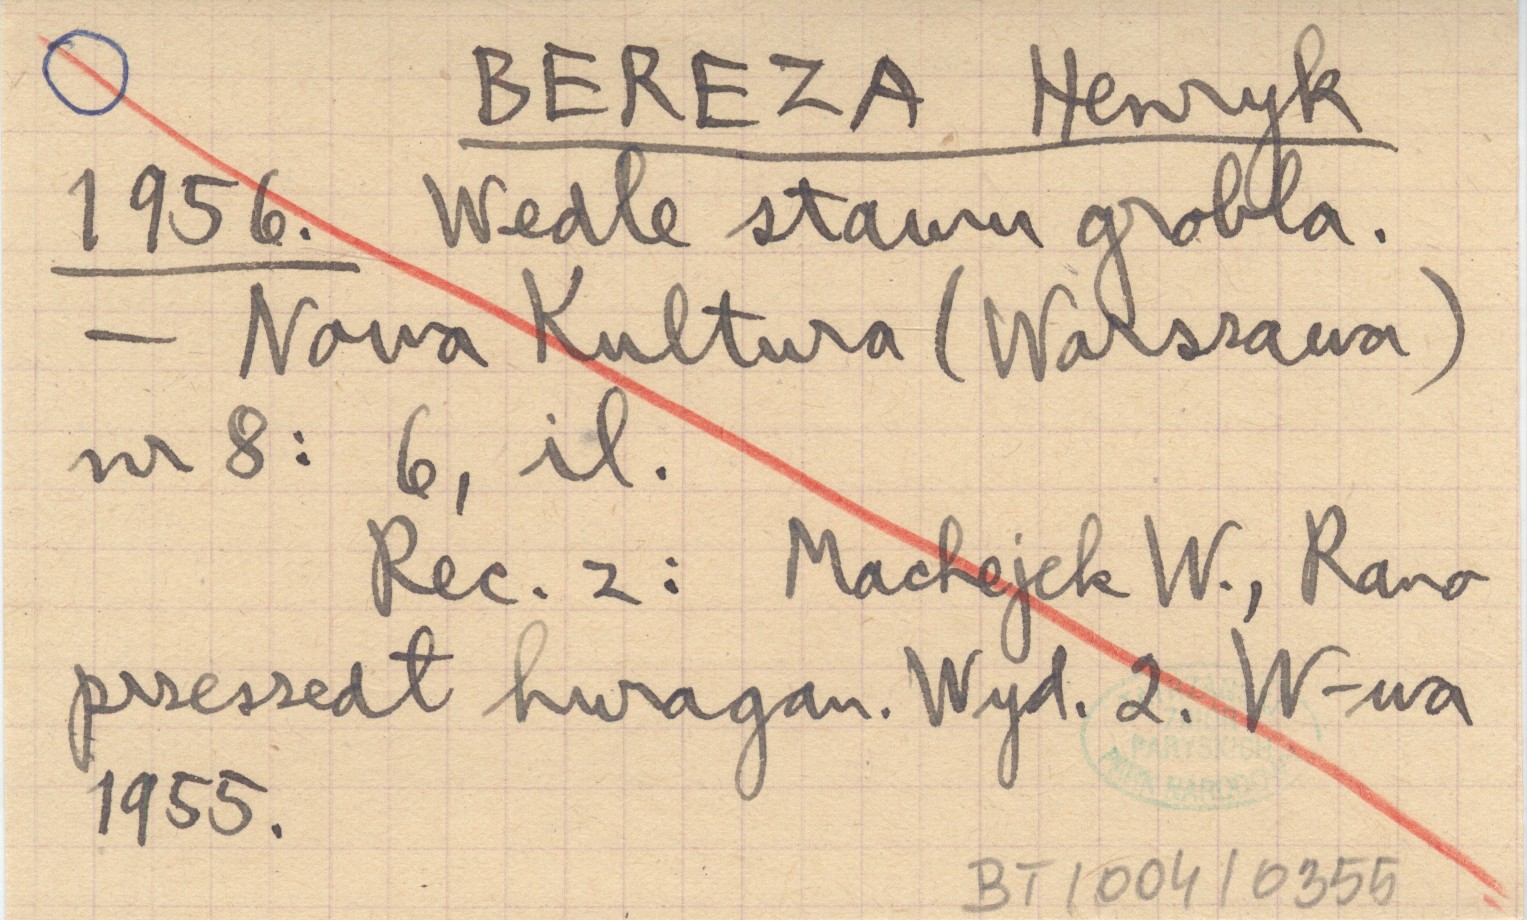 BEREZA Henryk
1956. Wedle stawu grobla.
— Nowa Kultura (Warszawa)
nr 8: 6, il.
Rec. z: Machejek W., Rano
przeszedł huragan. Wyd. 2. W-wa
1955.
PARYSKICH
BT/004/0355